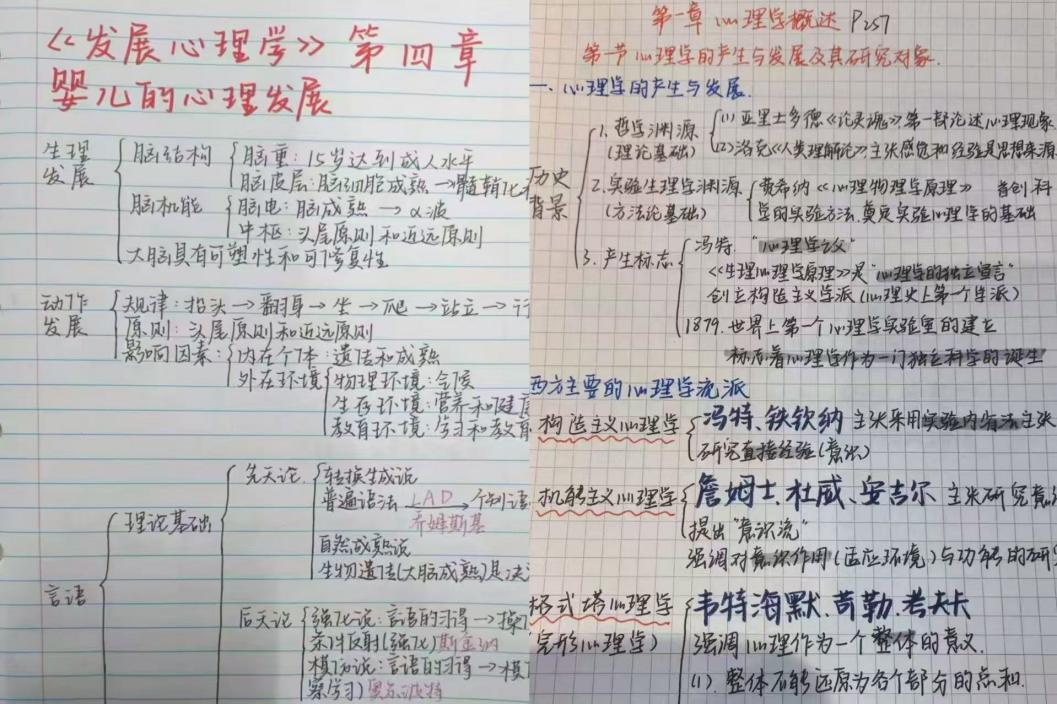 《发展心理学》第四章
婴儿的心理发展
生理发展
脑结构
脑重：15岁达到成人水平
脑皮层：脑细胞成熟→髓鞘化
脑机能
脑电：脑成熟→α波
中枢：头尾原则和近远原则
大脑具有可塑性和可修复性
动作发展
规律：抬头→翻身→坐→爬→站立→行
原则：头尾原则和近远原则
影响因素：
内在个体：遗传和成熟
外在环境
物理环境：
生存环境：营养和健康
教育环境：学习和教育
言语
理论基础
先天论
转换生成说
普遍语法 LAD→个别语
乔姆斯基
自然成熟说
生物遗传(大脑成熟)是决
后天论
强化说：言语的习得→操
条件反射(强化)斯金纳
模仿说：言语的习得→模
察学习)
第一章 心理学概述 P257
第一节 心理学的产生与发展及其研究对象.
一、心理学的产生与发展.
历史背景
1.哲学渊源
(理论基础)
(1)亚里士多德《论灵魂》第一部论述心理现象
(2)洛克《人类理解论》:主张感觉和经验是思想来源
2.实验生理学渊源
(方法论基础)
费希纳《心理物理学原理》 首创科
学的实验方法,奠定实验心理学的基础
3.产生标志
冯特."心理学之父"
《生理心理学原理》是"心理学的独立宣言"
创立构造主义学派(心理史上第一个学派)
1879.世界上第一个心理学实验室的建立
标志着心理学作为一门独立科学的诞生
西方主要的心理学流派
构造主义心理学
冯特、铁钦纳 主张采用实验内省法主张
研究直接经验(意识)
机能主义心理学
詹姆士、杜威、安吉尔 主张研究意
提出"意识流"
强调对意识作用(适应环境)与功能的研
格式塔心理学
(完形心理学)
韦特海默、苛勒、考夫卡
强调心理作为一个整体的意义.
(1).整体不能还原为各个部分的总和.